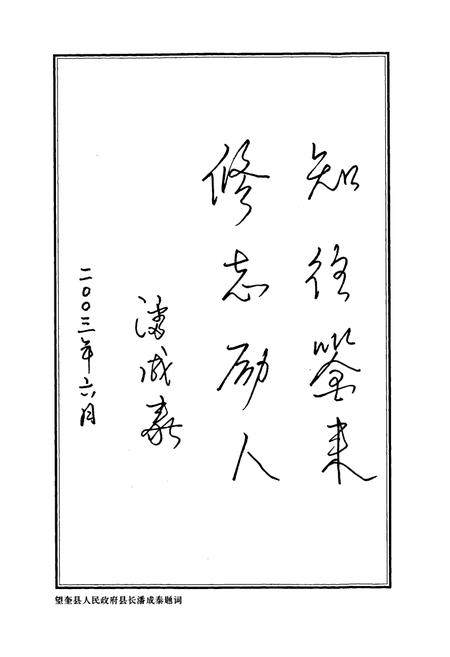 知往鉴来
修志励人
潘成泰
二〇〇三年六月
望奎县人民政府县长潘成泰题词